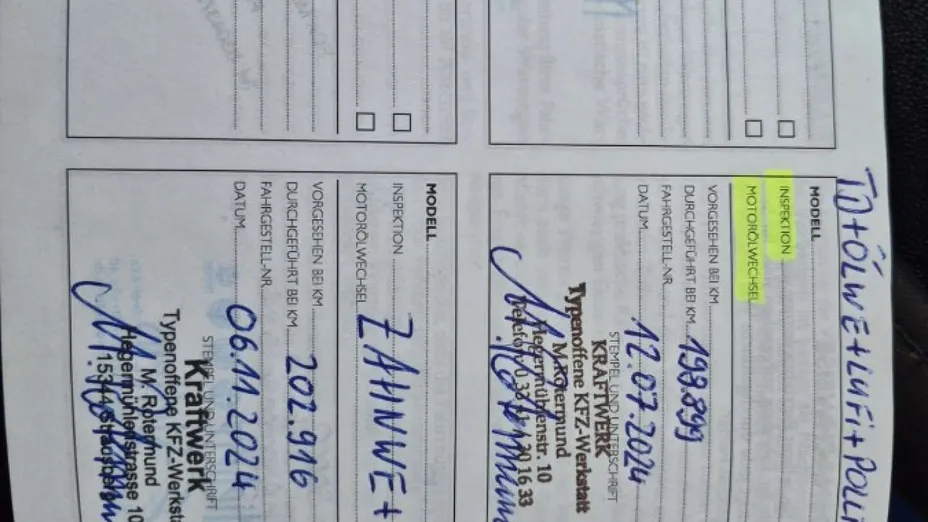 TÜ+ÖLWE+LUFI+POLL
MODELL
INSPEKTION
MOTORÖLWECHSEL
VORGESEHEN BEI KM
DURCHGEFÜHRT BEI KM 193.899
FAHRGESTELL-NR.
DATUM 12.07.2024
STEMPEL UND UNTERSCHRIFT
KRAFTWERK
Typenoffene KFZ-Werkstatt
M.Rotermund
Hegermühlenstr. 10
Telefon
20 16 33
MODELL
INSPEKTION
MOTORÖLWECHSEL
ZAHNWE+
VORGESEHEN BEI KM
DURCHGEFÜHRT BEI KM 202.916
FAHRGESTELL-NR.
DATUM 06.11.2024
STEMPEL UND UNTERSCHRIFT
Kraftwerk
Typenoffene KFZ-Werksta
M. Rotermund
Hegermühlenstrasse 10
15344 Strausberg